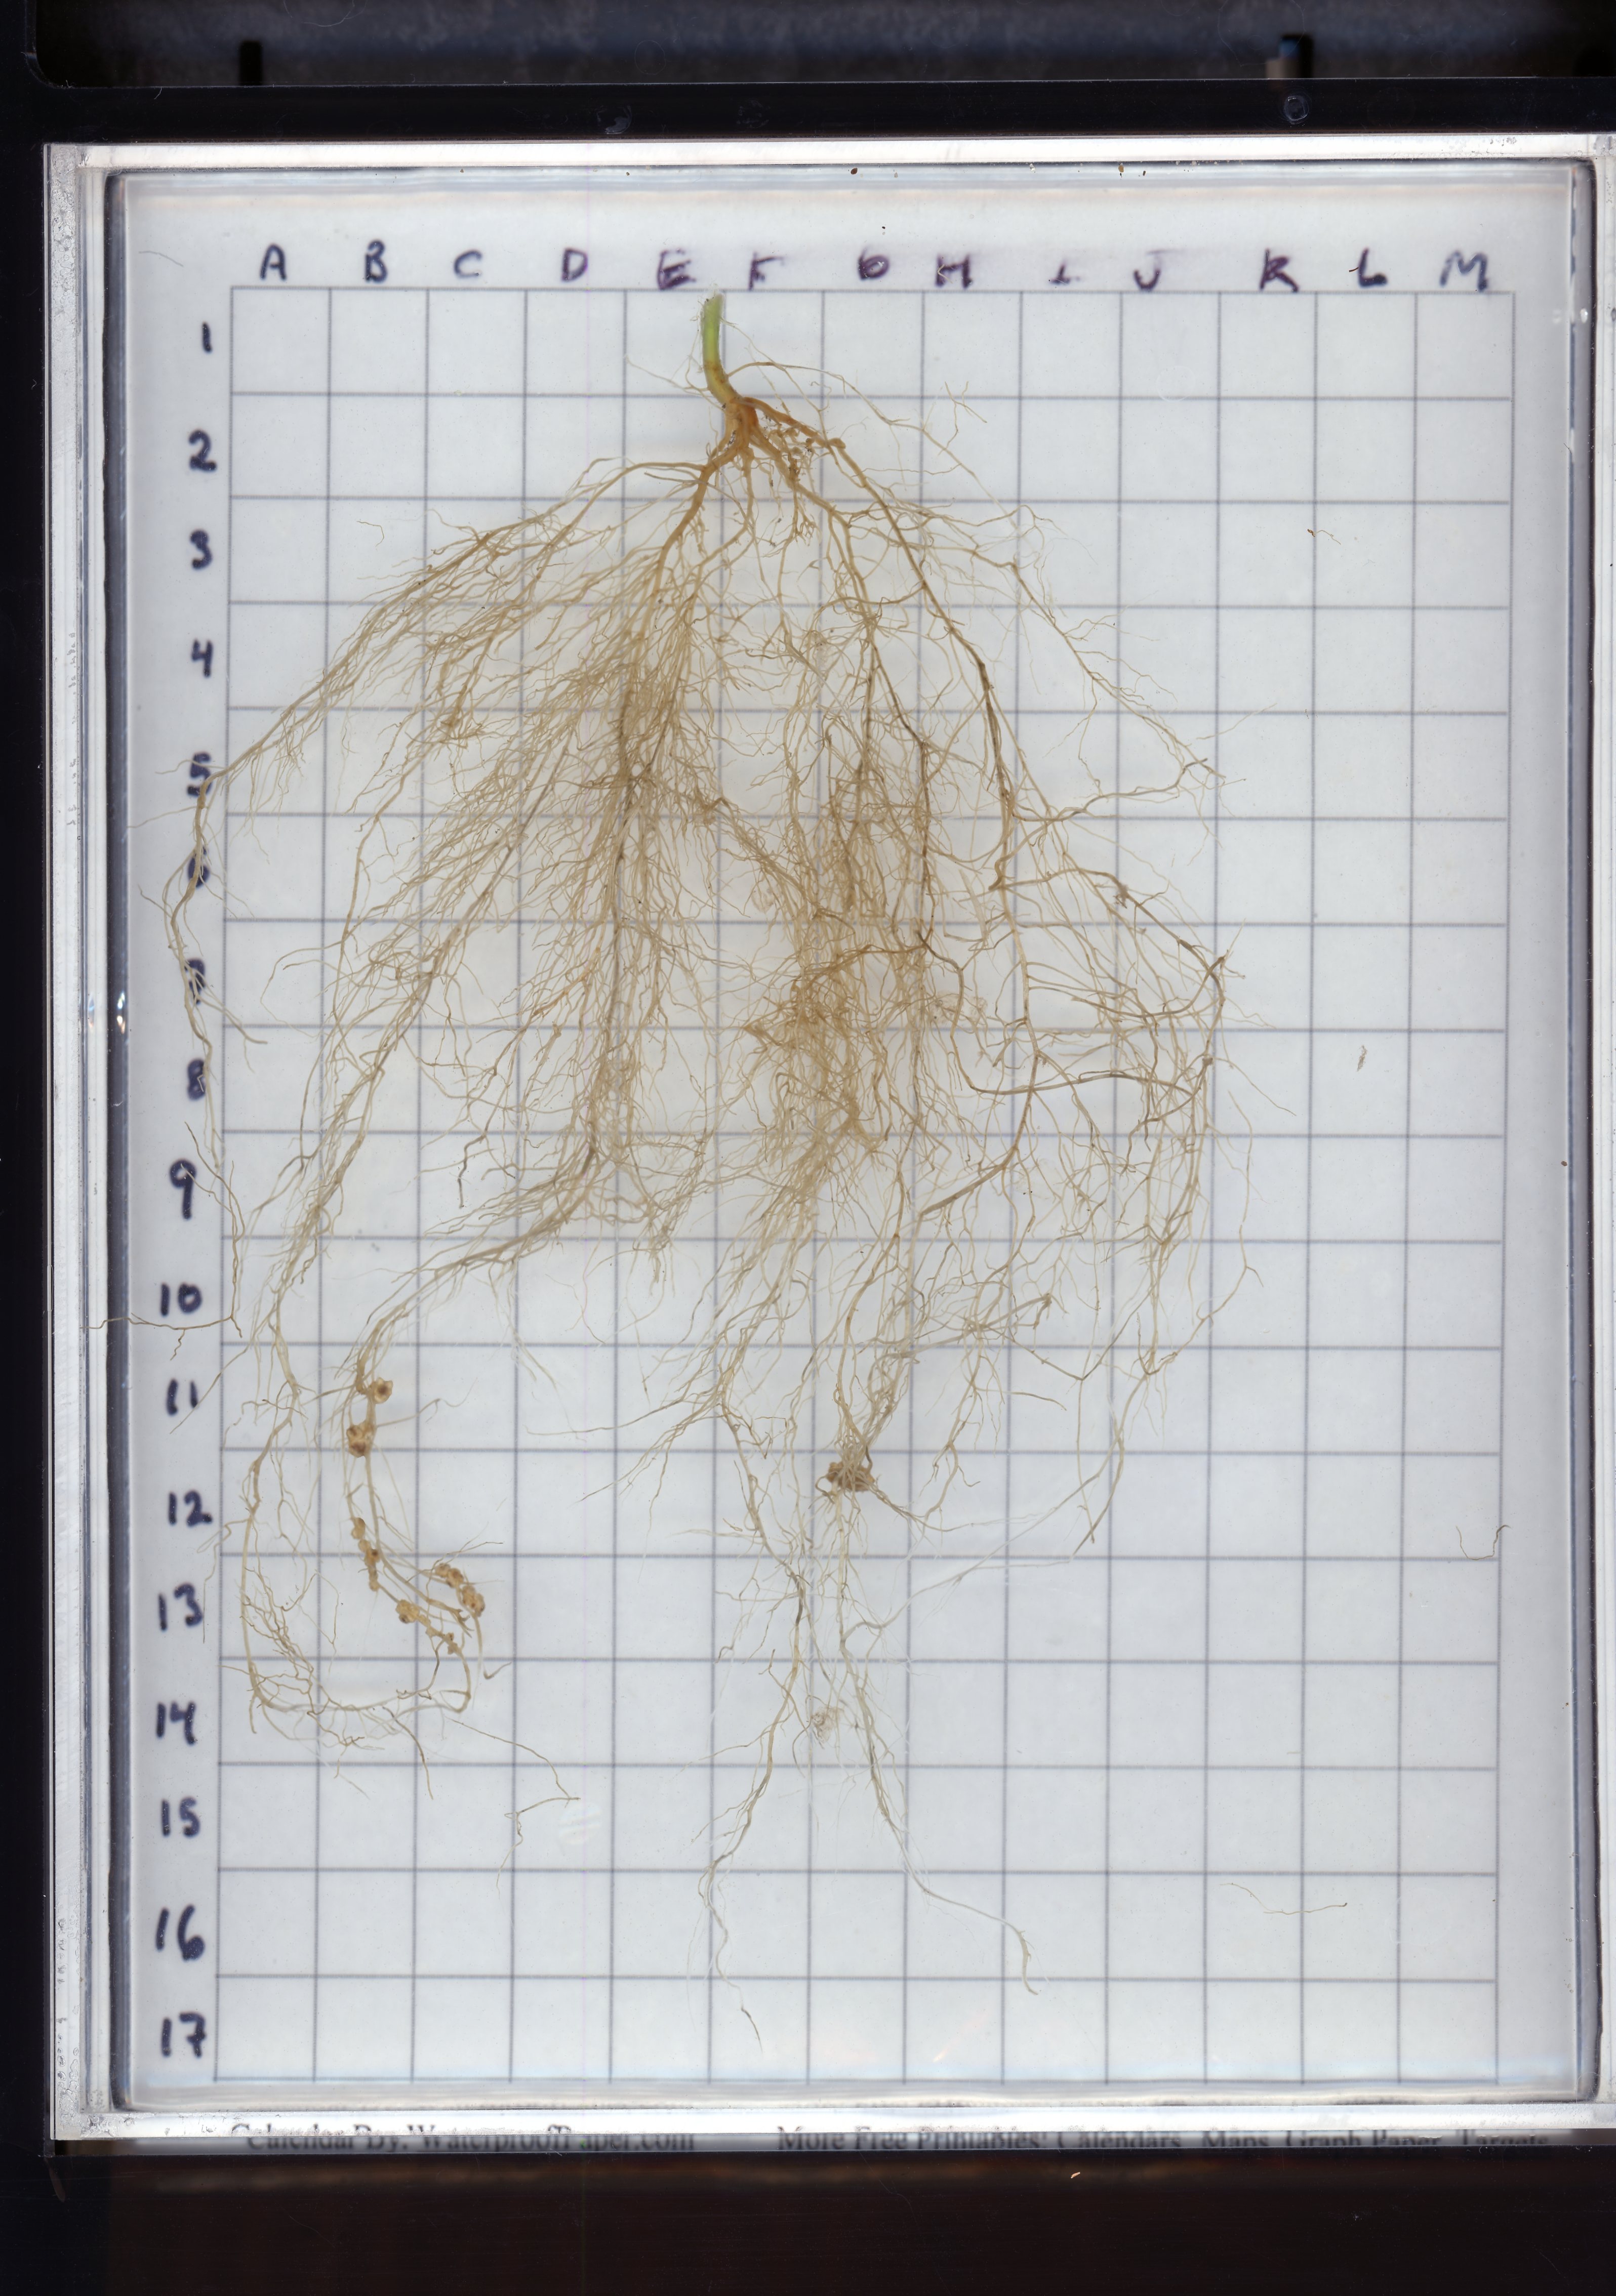 A B C D E F G H I J K L M
1
2
3
4
5
6
7
8
9
10
11
12
13
14
15
16
17
Calendar By: WaterproofPaper.com More Free Printables! Calendars, Maps, Graph Paper, Targets